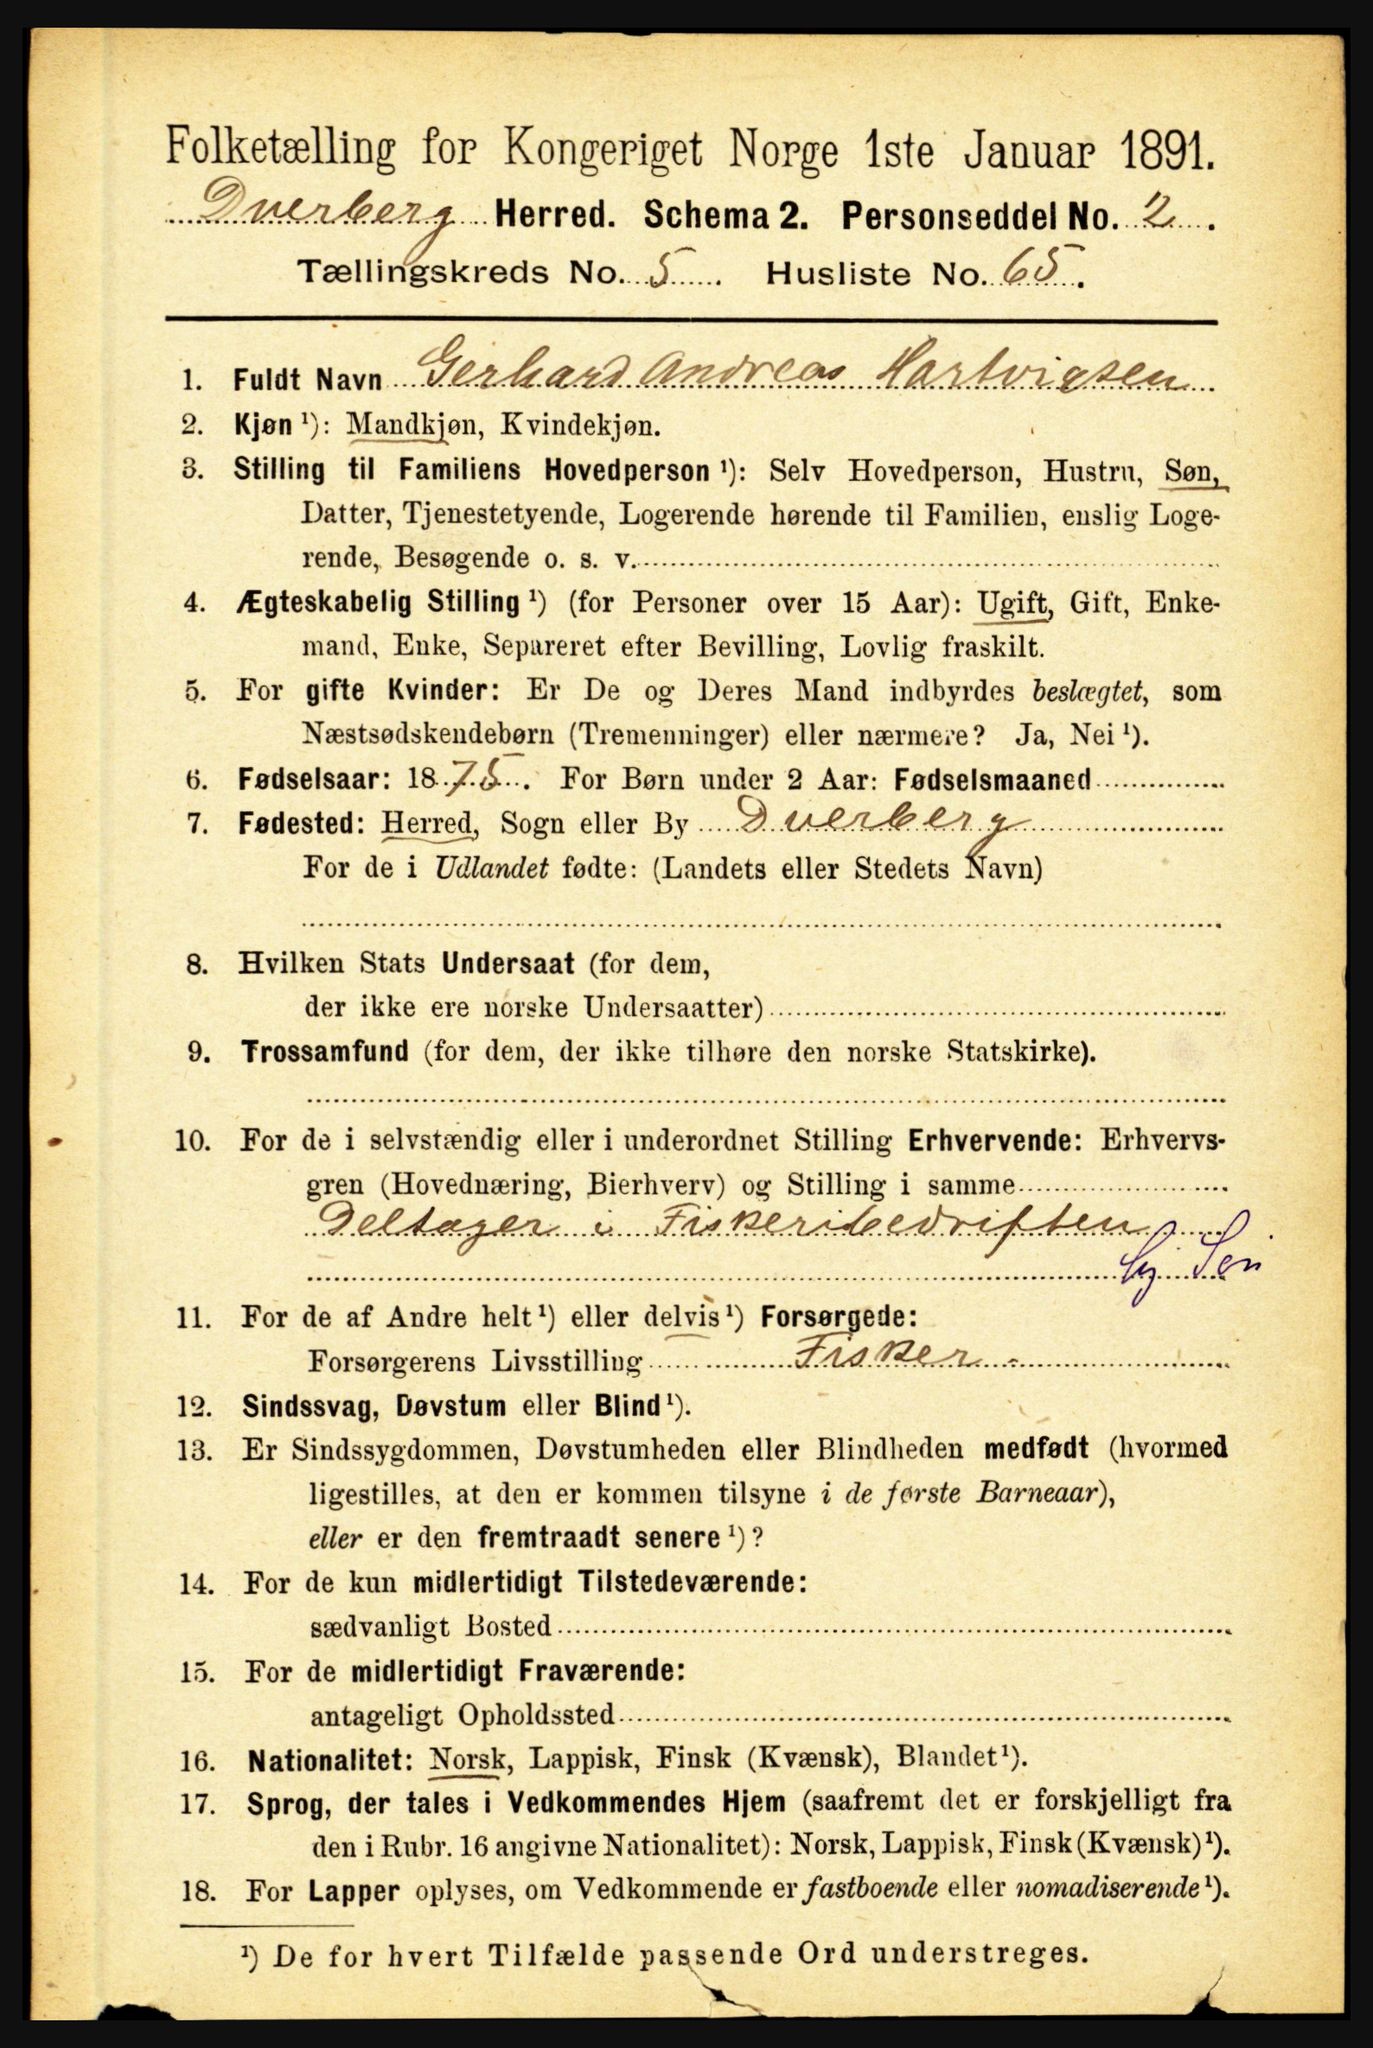 Folketælling for Kongeriget Norge 1ste Januar 1891.
Dverberg Herred. Schema 2. Personseddel No. 2.
Tællingskreds No. 5. Husliste No. 65.
1. Fuldt Navn Gerhard Andreas Hartvigsen
2. Kjøn ¹): Mandkjøn, Kvindekjøn.
3. Stilling til Familiens Hovedperson ¹): Selv Hovedperson, Hustru, Søn,
Datter, Tjenestetyende, Logerende hørende til Familien, enslig Loge-
rende, Besøgende o. s. v.
4. Ægteskabelig Stilling ¹) (for Personer over 15 Aar): Ugift, Gift, Enke-
mand, Enke, Separeret efter Bevilling, Lovlig fraskilt.
5. For gifte Kvinder: Er De og Deres Mand indbyrdes beslægtet, som
Næstsødskendebørn (Tremenninger) eller nærmere? Ja, Nei ¹).
6. Fødselsaar: 1875. For Børn under 2 Aar: Fødselsmaaned
7. Fødested: Herred, Sogn eller By Dverberg
For de i Udlandet fødte: (Landets eller Stedets Navn)
8. Hvilken Stats Undersaat (for dem,
der ikke ere norske Undersaatter)
9. Trossamfund (for dem, der ikke tilhøre den norske Statskirke).
10. For de i selvstændig eller i underordnet Stilling Erhvervende: Erhvervs-
gren (Hovednæring, Bierhverv) og Stilling i samme
Deltager i Fiskeribedriften
11. For de af Andre helt ¹) eller delvis ¹) Forsørgede:
Forsørgerens Livsstilling Fisker
12. Sindssvag, Døvstum eller Blind ¹).
13. Er Sindssygdommen, Døvstumheden eller Blindheden medfødt (hvormed
ligestilles, at den er kommen tilsyne i de første Barneaar),
eller er den fremtraadt senere ¹)?
14. For de kun midlertidigt Tilstedeværende:
sædvanligt Bosted
15. For de midlertidigt Fraværende:
antageligt Opholdssted
16. Nationalitet: Norsk, Lappisk, Finsk (Kvænsk), Blandet ¹).
17. Sprog, der tales i Vedkommendes Hjem (saafremt det er forskjelligt fra
den i Rubr. 16 angivne Nationalitet): Norsk, Lappisk, Finsk (Kvænsk) ¹).
18. For Lapper oplyses, om Vedkommende er fastboende eller nomadiserende ¹).
¹) De for hvert Tilfælde passende Ord understreges.